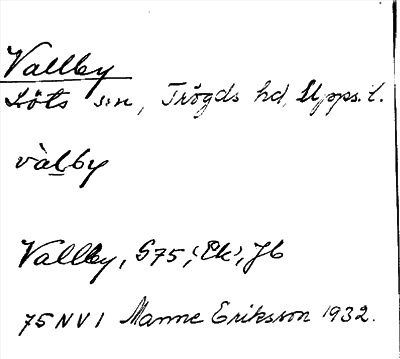 Vallby
Löts sn, Trögds hd, Upps. l.
vàlby
Vallby, G75, (Ek), Jb
75 NV 1 Manne Eriksson 1932.